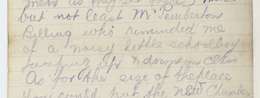 but not least Mr Pemberton
Billing who reminded me
of a noisy little schoolboy
jumping up & down
As for the size of the place
you could put the New